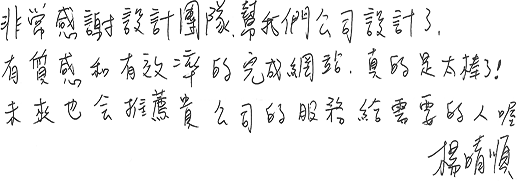 非常感謝設計團隊,幫我們公司設計了,
有質感和有效率的完成網站,真的是太棒了!
未來也会推薦貴公司的服務給需要的人喔
楊晴順